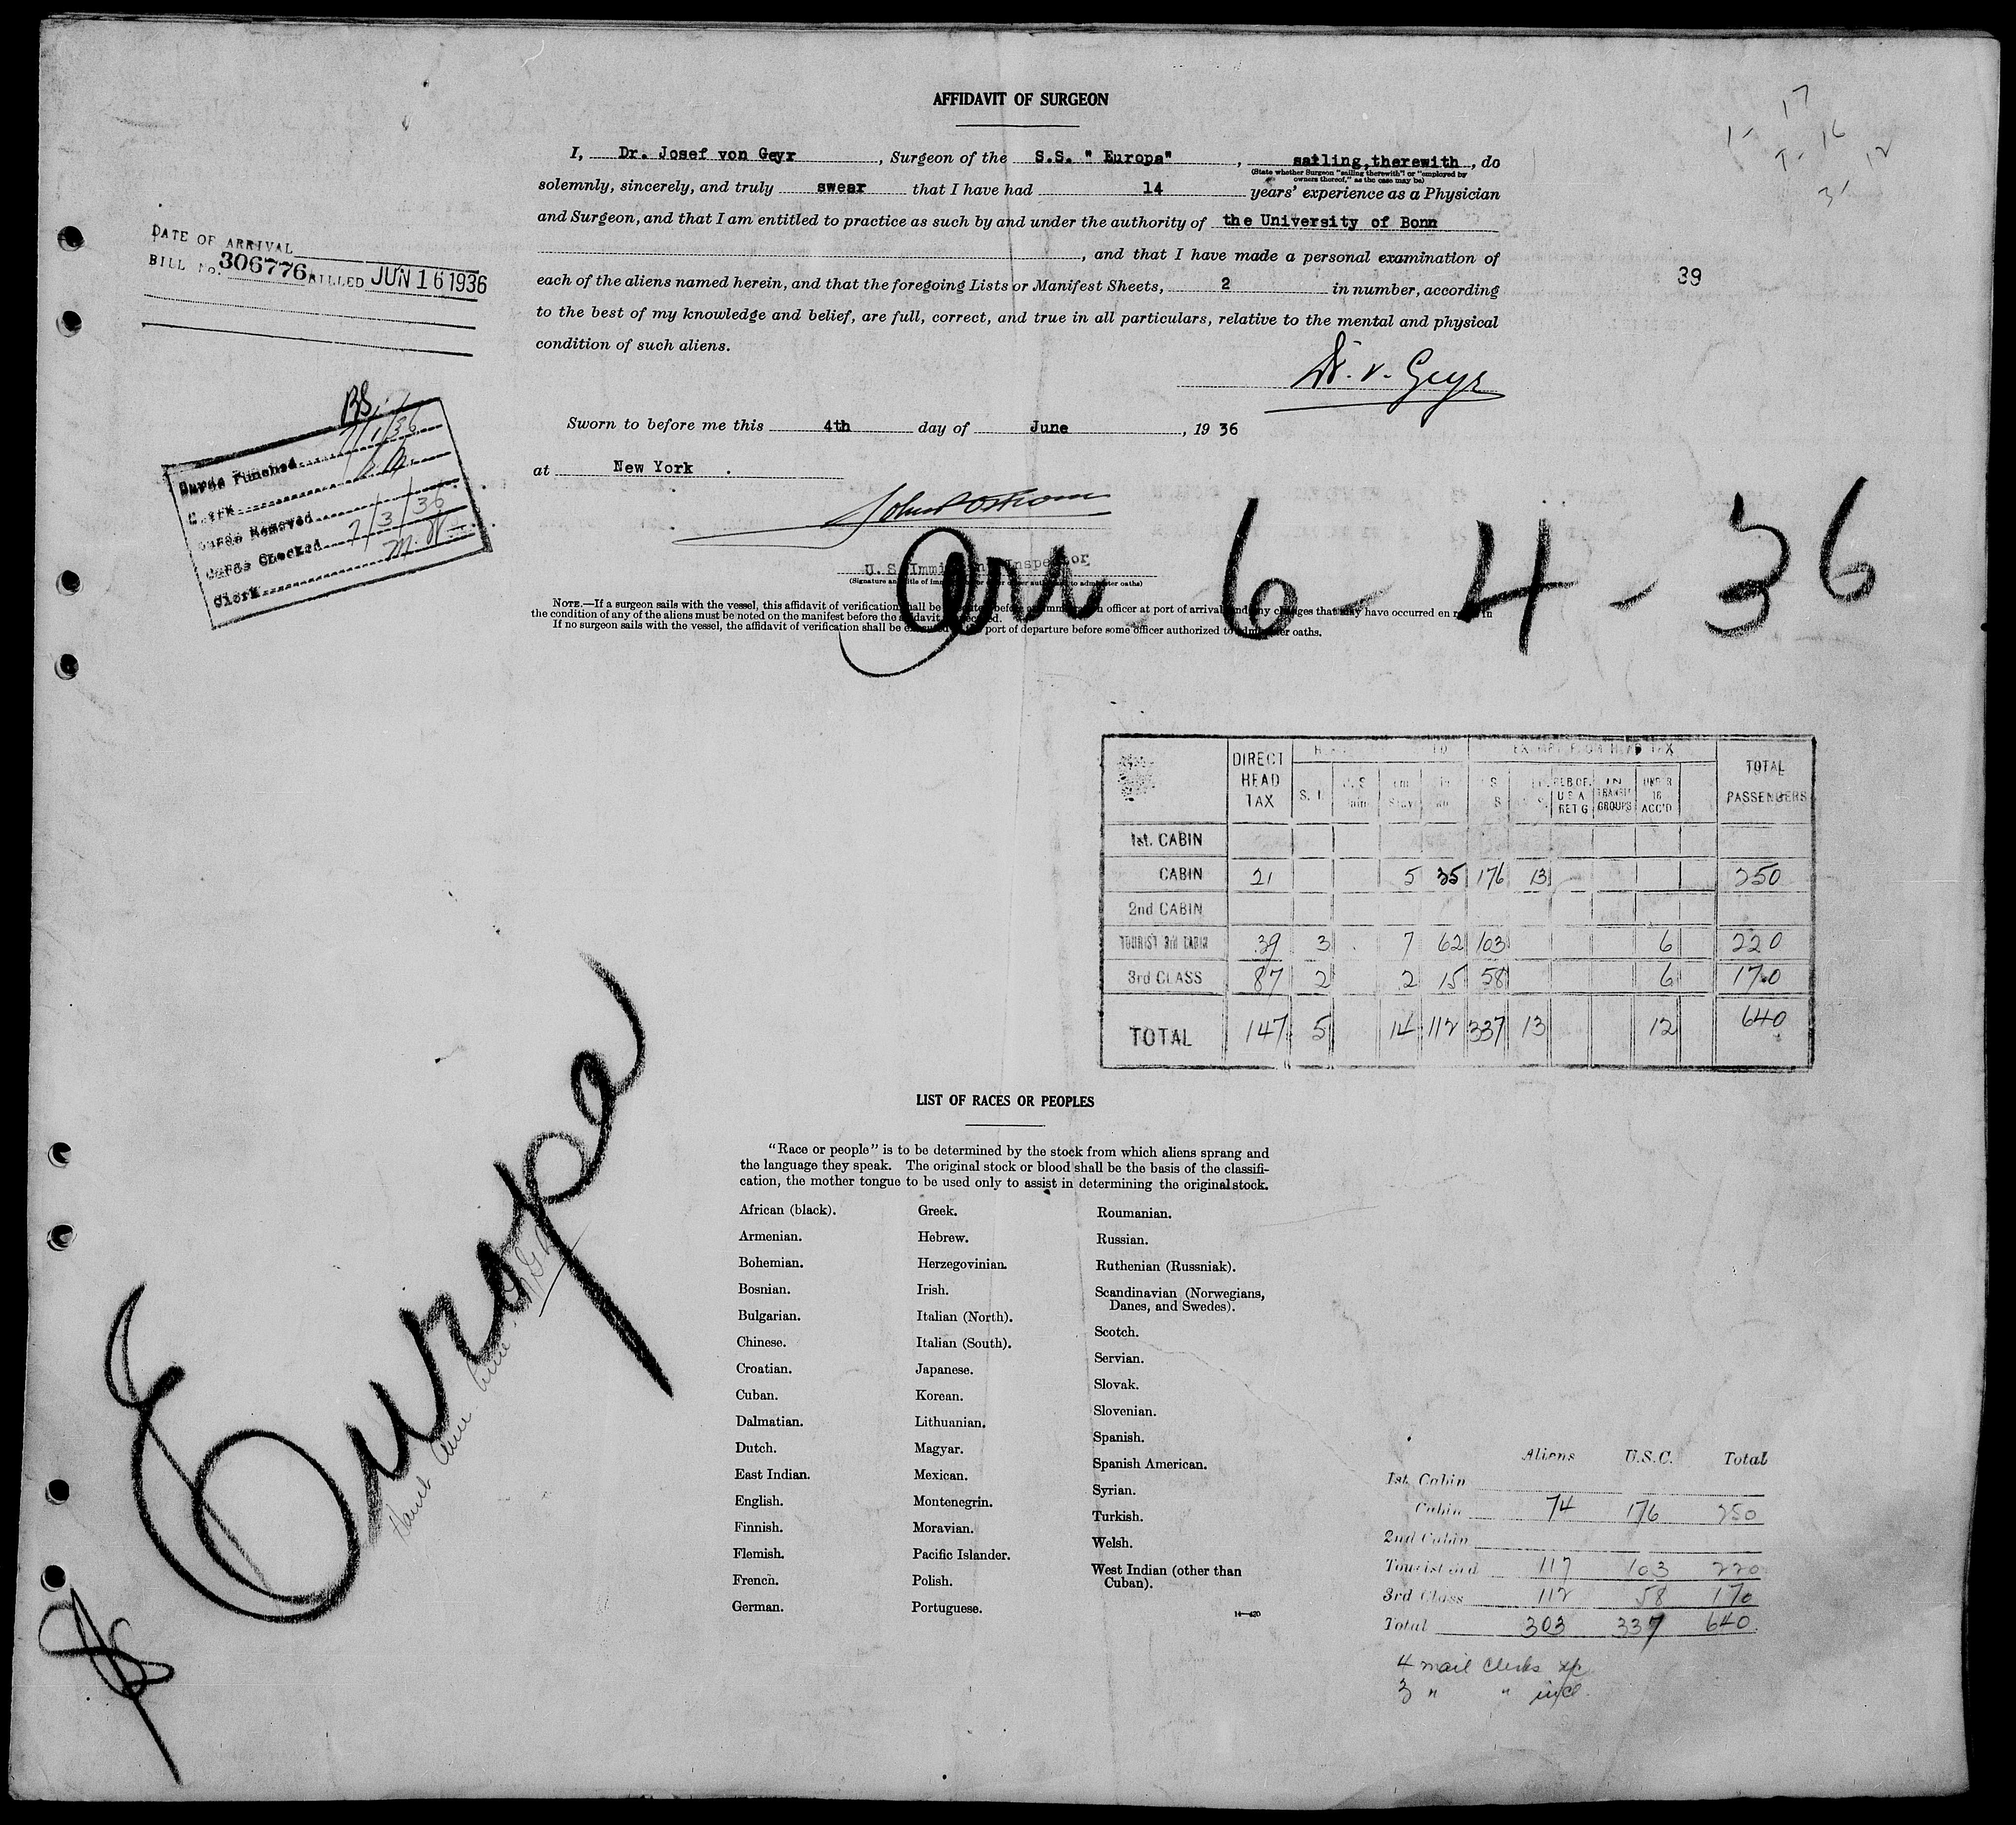 AFFIDAVIT OF SURGEON
I, Dr. Josef von Geyr, Surgeon of the S.S. " Europa", sailing therewith, do
(State whether Surgeon "sailing therewith" or "employed by
owners thereof," as the case may be)
solemnly, sincerely, and truly swear that I have had 14 years' experience as a Physician
and Surgeon, and that I am entitled to practice as such by and under the authority of the University of Bonn
, and that I have made a personal examination of
each of the aliens named herein, and that the foregoing Lists or Manifest Sheets, 2 in number, according
to the best of my knowledge and belief, are full, correct, and true in all particulars, relative to the mental and physical
condition of such aliens.
Dr. v. Geyr
Sworn to before me this 4th day of June, 19 36
at New York .
U.S. Immigrant Inspector
Arr 6 - 4 - 36
NOTE.—If a surgeon sails with the vessel, this affidavit of verification shall be executed before an immigration officer at port of arrival and any changes that may have occurred en route in
the condition of any of the aliens must be noted on the manifest before the affidavit is executed.
If no surgeon sails with the vessel, the affidavit of verification shall be executed at port of departure before some officer authorized to administer oaths.
1- 17
T- 16
3- 12
39
DATE OF ARRIVAL
BILL NO. 306776 BILLED JUN 16 1936
BS
Cards Punched 7/1/36
Clerk
Cards Removed
Cards Checked 7/3/36
Clerk M. W.
DIRECT HEAD TAX S. I. EXEMPT FROM HEAD TAX REB.OF. U S A RET G IN TRANSIT GROUPS UNDER 16 ACC'D TOTAL PASSENGERS
1st. CABIN
CABIN 21 5 35 176 13 250
2nd CABIN
TOURIST 3rd CABIN 39 3 7 62 103 6 220
3rd CLASS 87 2 2 15 58 6 170
TOTAL 147 5 14 112 337 13 12 640
Europa
LIST OF RACES OR PEOPLES
"Race or people" is to be determined by the stock from which aliens sprang and
the language they speak. The original stock or blood shall be the basis of the classifi-
cation, the mother tongue to be used only to assist in determining the original stock.
African (black).
Armenian.
Bohemian.
Bosnian.
Bulgarian.
Chinese.
Croatian.
Cuban.
Dalmatian.
Dutch.
East Indian.
English.
Finnish.
Flemish.
French.
German.
Greek.
Hebrew.
Herzegovinian.
Irish.
Italian (North).
Italian (South).
Japanese.
Korean.
Lithuanian.
Magyar.
Mexican.
Montenegrin.
Moravian.
Pacific Islander.
Polish.
Portuguese.
Roumanian.
Russian.
Ruthenian (Russniak).
Scandinavian (Norwegians,
Danes, and Swedes).
Scotch.
Servian.
Slovak.
Slovenian.
Spanish.
Spanish American.
Syrian.
Turkish.
Welsh.
West Indian (other than
Cuban).
14—420
Aliens U.S.C. Total
1st. Cabin
Cabin 74 176 250
2nd Cabin
Tourist 3rd 117 103 220
3rd Class 112 58 170
Total 303 337 640
4 mail clerks
3 " " incl.